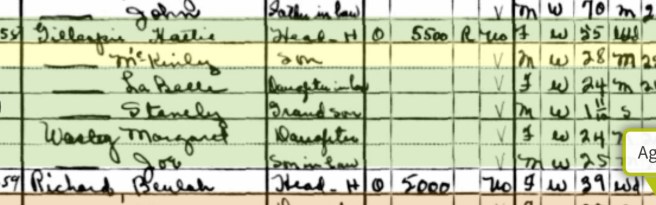 —— John Father in law V M W 70 M 2
55 Gillespie Hattie Head-H O 5500 R No F W 55 Wd
—— McKinley Son V M W 28 M 2
—— La Belle Daughter in law V F W 24 M 2
—— Stanely Grand son V M W 1 11/12 S
Wasley Margaret Daughter V F W 24
—— Joe Son in law V M W 25
59 Richard, Beulah Head-H O 5000 No F W 39 Wd
Ag